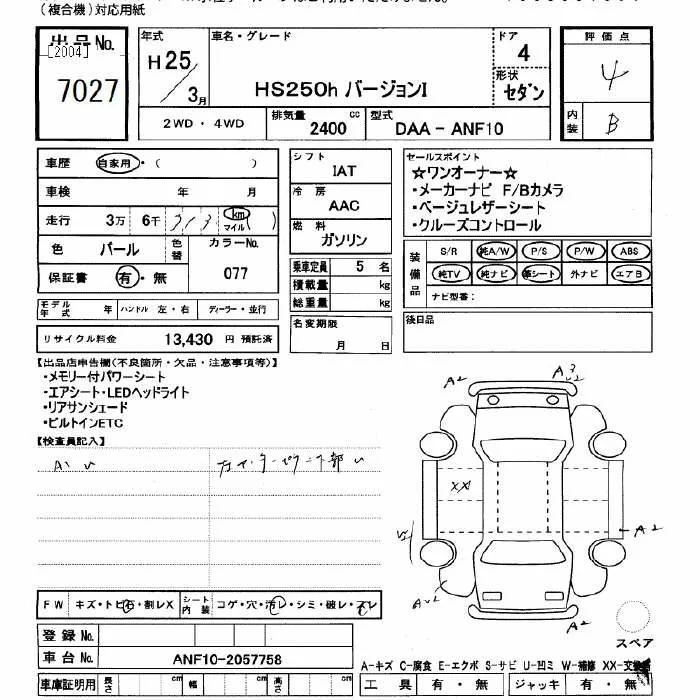 (複合機)対応用紙
出品No.
[2004]
7027
年式
H25
3月
車名・グレード
HS250h バージョンI
ドア
4
形状
セダン
2WD・4WD
排気量
2400 cc
型式
DAA-ANF10
評価点
4
内装
B
車歴
自家用・( )
車検 年 月
走行 3万 6千 313 km マイル ( )
色 パール 色替
カラーNo.
077
保証書 有・無
シフト
IAT
冷房
AAC
燃料
ガソリン
乗車定員 5 名
積載量 kg
総重量 kg
セールスポイント
☆ワンオーナー☆
・メーカーナビ F/Bカメラ
・ベージュレザーシート
・クルーズコントロール
装備品
S/R 純A/W P/S P/W ABS
純TV 純ナビ 革シート 外ナビ エアB
ナビ型番:
モデル年式 ハンドル 左・右 ディーラー・並行
リサイクル料金 13,430 円 預託済
名変期限
月 日
後日品
【出品店申告欄(不良箇所・欠品・注意事項等)】
・メモリー付パワーシート
・エアシート・LEDヘッドライト
・リアサンシェード
・ビルトインETC
【検査員記入】
A2
A2
XX
A2
FW キズ・トビ石・割レX
シート内装 コゲ・穴・汚レ・シミ・破レ・スレ
登録No.
車台No. ANF10-2057758
車庫証明用 長さ cm 幅 cm 高さ cm
スペア
A-キズ C-腐食 E-エクボ S-サビ U-凹ミ W-補修 XX-交換
工具 有・無 ジャッキ 有・無